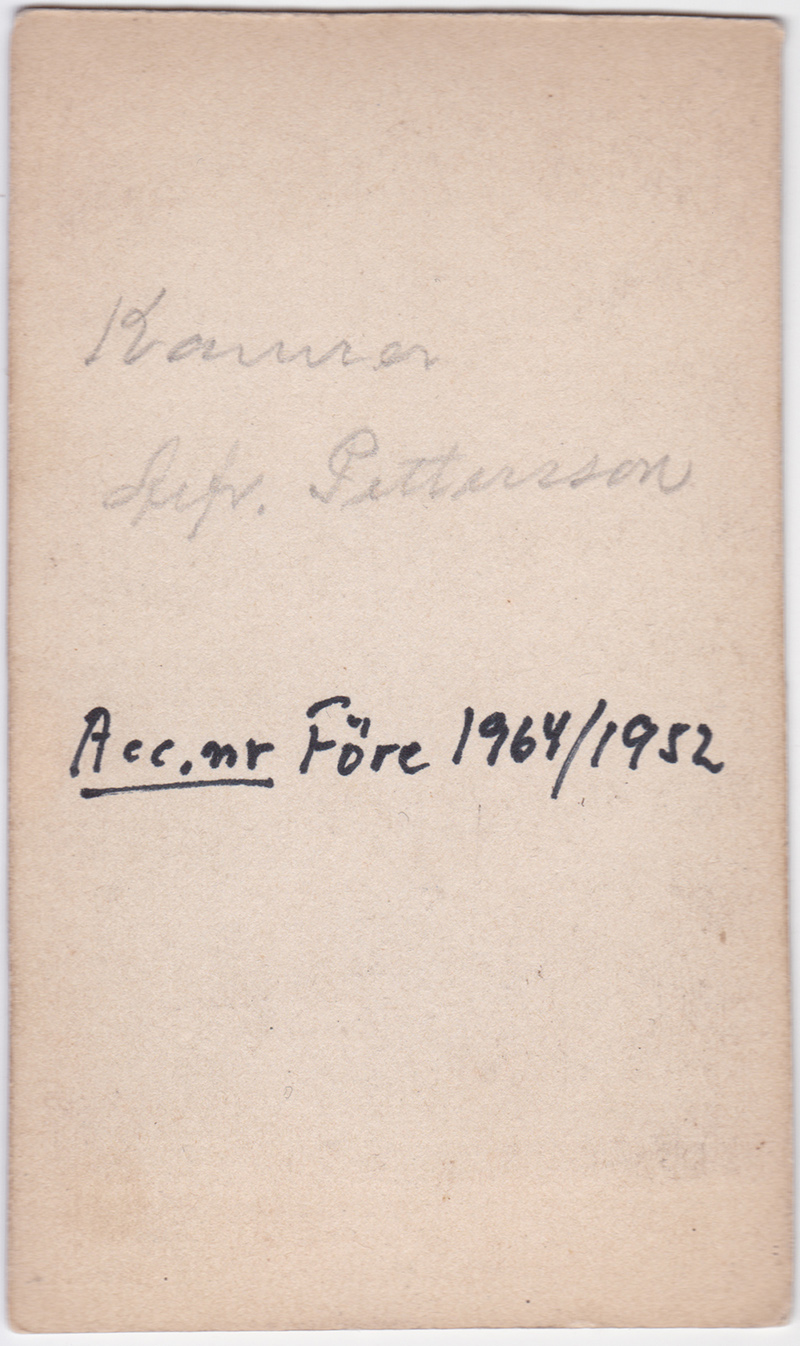 Kamrer
Pettersson
Acc.nr Före 1964/1952